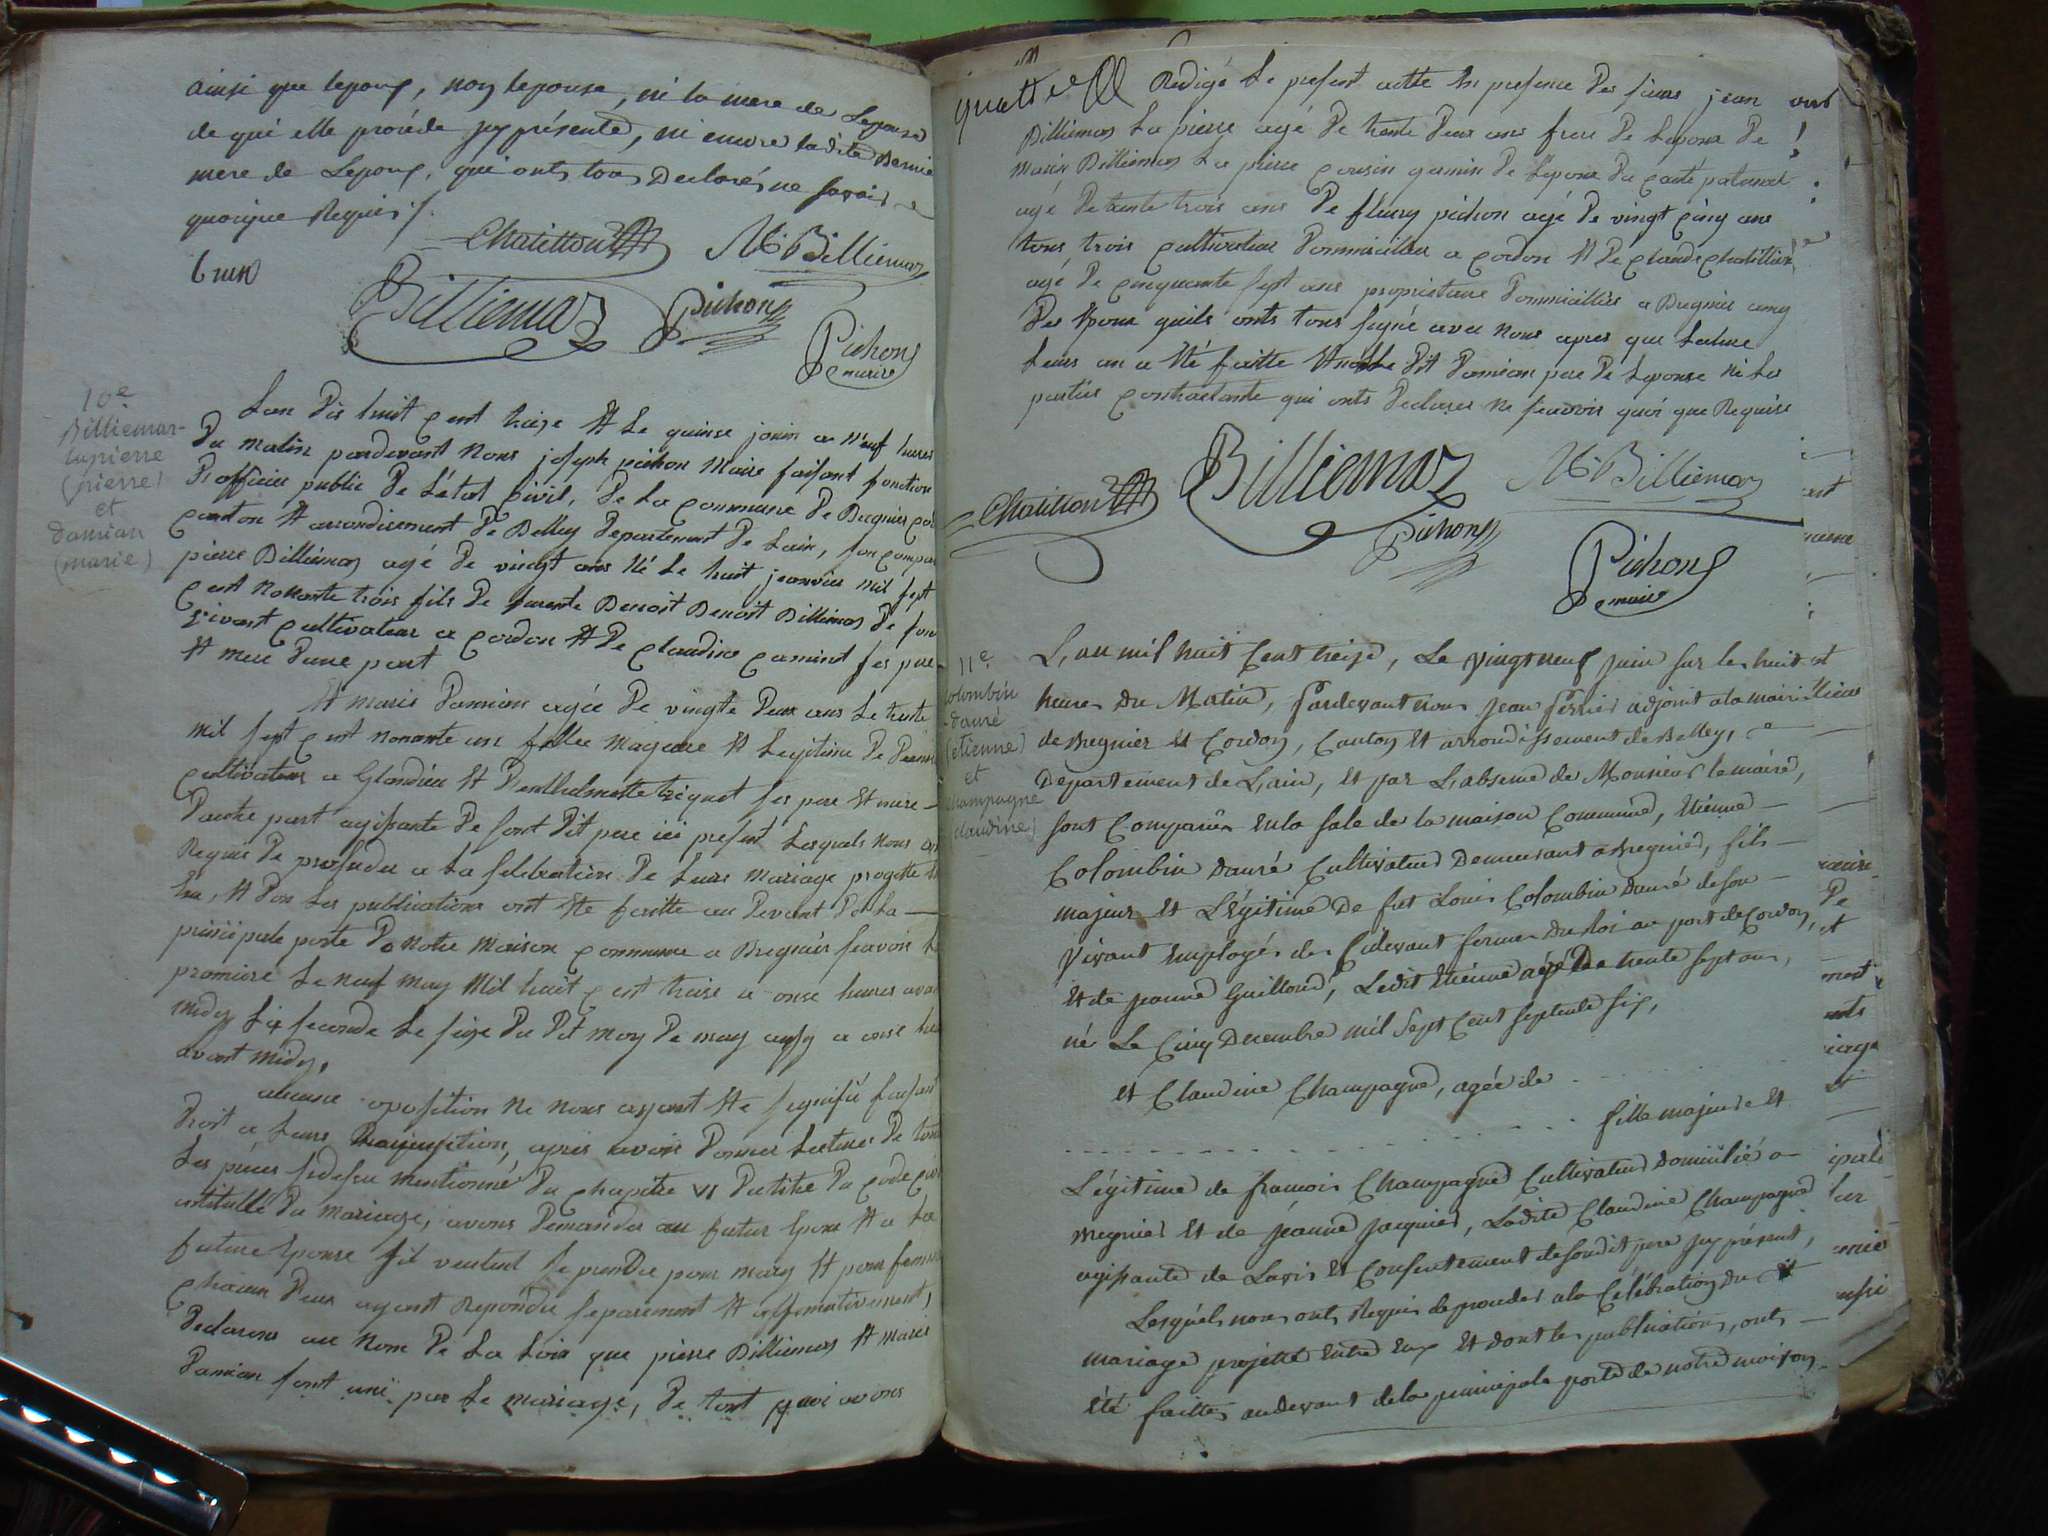 ainsi que lepoux, non lepouse, ni la mere de Lepouse
de qui elle procéde jcy présente, ni encore ladite Bernie
mere de Lepoux, qui onts tous Déclarés ne savoir
quoique Requis ./.
Chatillon
N: Billiemaz
Brun
Billiemaz
Pichon
Pichon
maire
10e
Billiemaz-
lapierre
(pierre)
et
Damian
(marie)
Lan Dix huit Cent traize Et Le quinse jouin a Neuf heures
Du matin pardevant Nous joseph pichon Maire faisant fonction
D'officier public De Létat Civil, De La Commune De Bregnier
Canton Et arrondisement De Belley Departement De Lain, son
pierre Billiémaz agé De vingt ans Né Le huit jeanvier mil sept
Cent Nonante trois fils De Benoit Benoit Billiemaz De son
vivant Cultivateur a Cordon Et De Claudine Caminet ses pere
Et mere Dune part
Et marie Damian agée De vingte Deux ans Le trente
mil sept Cent nonante un fille mageure Et Legitime De
Cultivateur a Glandieu Et ses pere Et mere
Dautre part agissante De sont Dit pere ici present Lesquels Nous
Requis De proseder a La Selebration De Leurs Mariage progette
Eux, Et Don Les publications ont Ete faitte au Devant De La
prinsipale porte De Notre Maison Commune a Bregnier seavoir La
premiere Le Neuf May Mil huit Cent traise a onse heures avan
midy La seconde Le seize Du Dit moy De may aussy a onse
avant midy,
aucune oposition Ne Nous ayant Ete signifié faisant
Droit a Leurs Requisition, apres avoir Donner Lecture De toute
Les piéces sidesus Mentionné Du Chapitre VI Du titre Du Code Civil
intitullé Du Mariage, avons Demander au futur Epoux Et a La
future Epouse sil veulent se prendre pour mary Et pour femme
Chacun Deux ayant Repondu separement Et affirmativement,
Declarons au Nom De La Loix que pierre Billiemaz Et Marie
Damian sont uni par Le mariage, De tout quoi avons
Redigé Le present acte En presence Des sieurs jean
Billiémas La pierre agé De trente Deux ans frere De Lepoux De
Marin Billiemas La pierre Cousin germin De Lepoux Du Coté paternel
agé De trente trois ans De fleury pichon agé De vingt Cinq ans
tous trois Cultivateur Dommicillier a Cordon Et De Claude Chatillion
agé De Cinquante sept ans proprietaire Dommicillier a Bregnier
Des Epoux quils onts tous signé avec Nous apres que Lecture
Leurs an a Eté faitte Dit Damian pere De Lepouse Ni La
partiés Contractante qui onts Declares Ne seavoir quoi que Requise
Chatillon
Billiemaz
N: Billiemaz
Pichon
Pichon
maire
11e
Colombin
dauré
(etienne)
et
Champagne
(claudine)
L'an mil huit Cent treize, Le vingt neuf Juin sur les huit
heures Du Matin, Pardevant nous Jean Perrier adjoint a la mairie
de Bregnier et Cordon, Canton et arrondissement de Belley,
Département de L'ain, et par L'absence de Monsieur le maire,
sont Comparûs en la sale de la maison Commune, Etienne
Colombin Dauré Cultivateur Demeurant a Bregnier, fils
majeur et Légitime De feu Louis Colombin Dauré de son
vivant employés des Cidevant fermes Du Roi au port de Cordon,
et de Jeanne Guilloud, Ledit Etienne agé De trente sept ans,
né Le Cinq Decembre mil sept Cent septente six,
et Claudine Champagne, agée de
fille majeure et
Légitime de francois Champagne Cultivateur Domicilié a
Bregnier et de Jeanne Jacquier, Ladite Claudine Champagne
agissante de Lavis et Consentement de sondit pere jcy présent,
Lesquels nous ont Requis de procéder a la Célébration du
mariage projetté entre eux et dont les publications, onts
été faittes au devant de la principale porte de notre maison